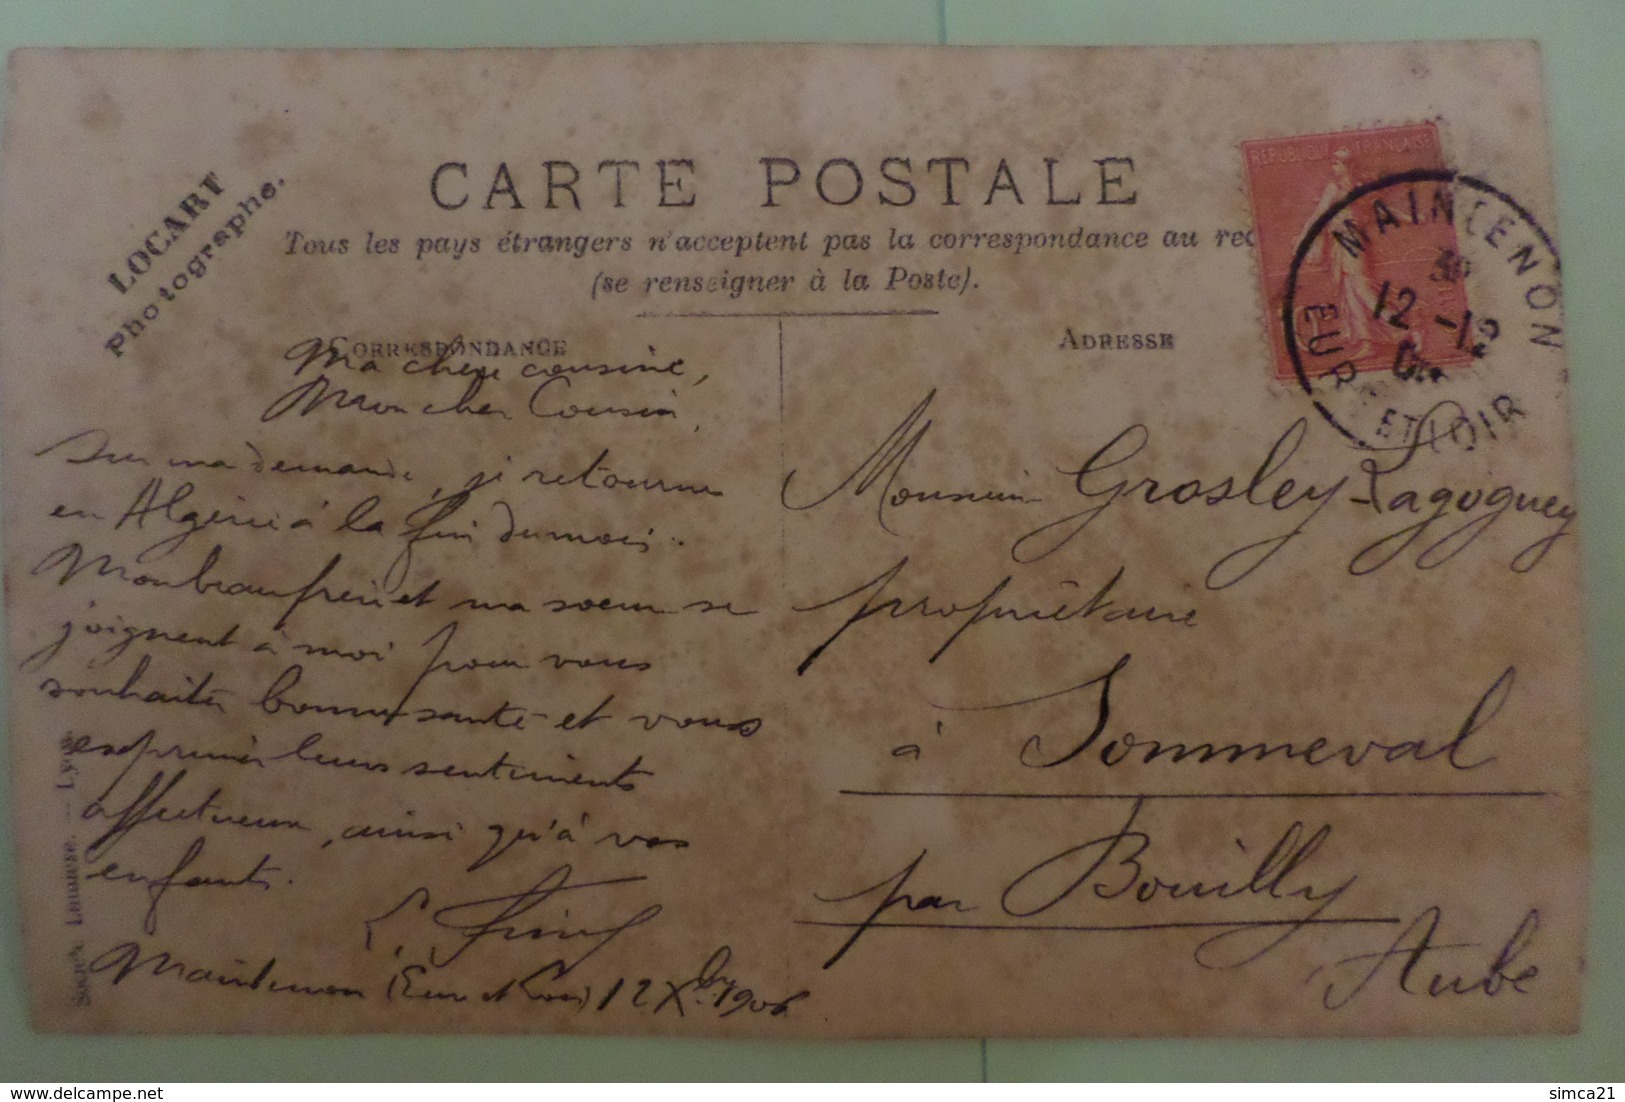 LOCART
Photographe.
CARTE POSTALE
Tous les pays étrangers n'acceptent pas la correspondance au rec
(se renseigner à la Poste).
CORRESPONDANCE
ADRESSE
REPUBLIQUE FRANÇAISE
MAINTENON
12 -12
EURE ET LOIR
Ma chère cousine,
Mon cher Cousin,
Sur ma demande, je retourne
en Algérie à la fin du mois.
Mon beau frère et ma soeur se
joignent à moi pour vous
souhaiter bonne santé et vous
exprimer leurs sentiments
affectueux, ainsi qu'à vos
enfants.
Maintenon (Eure et Loir) 12 Xbre 1906
Monsieur Grosley-Lagoguey
propriétaire
à Sommeval
par Bouilly
Aube
Lyon.
http://www.delcampe.net
simca21